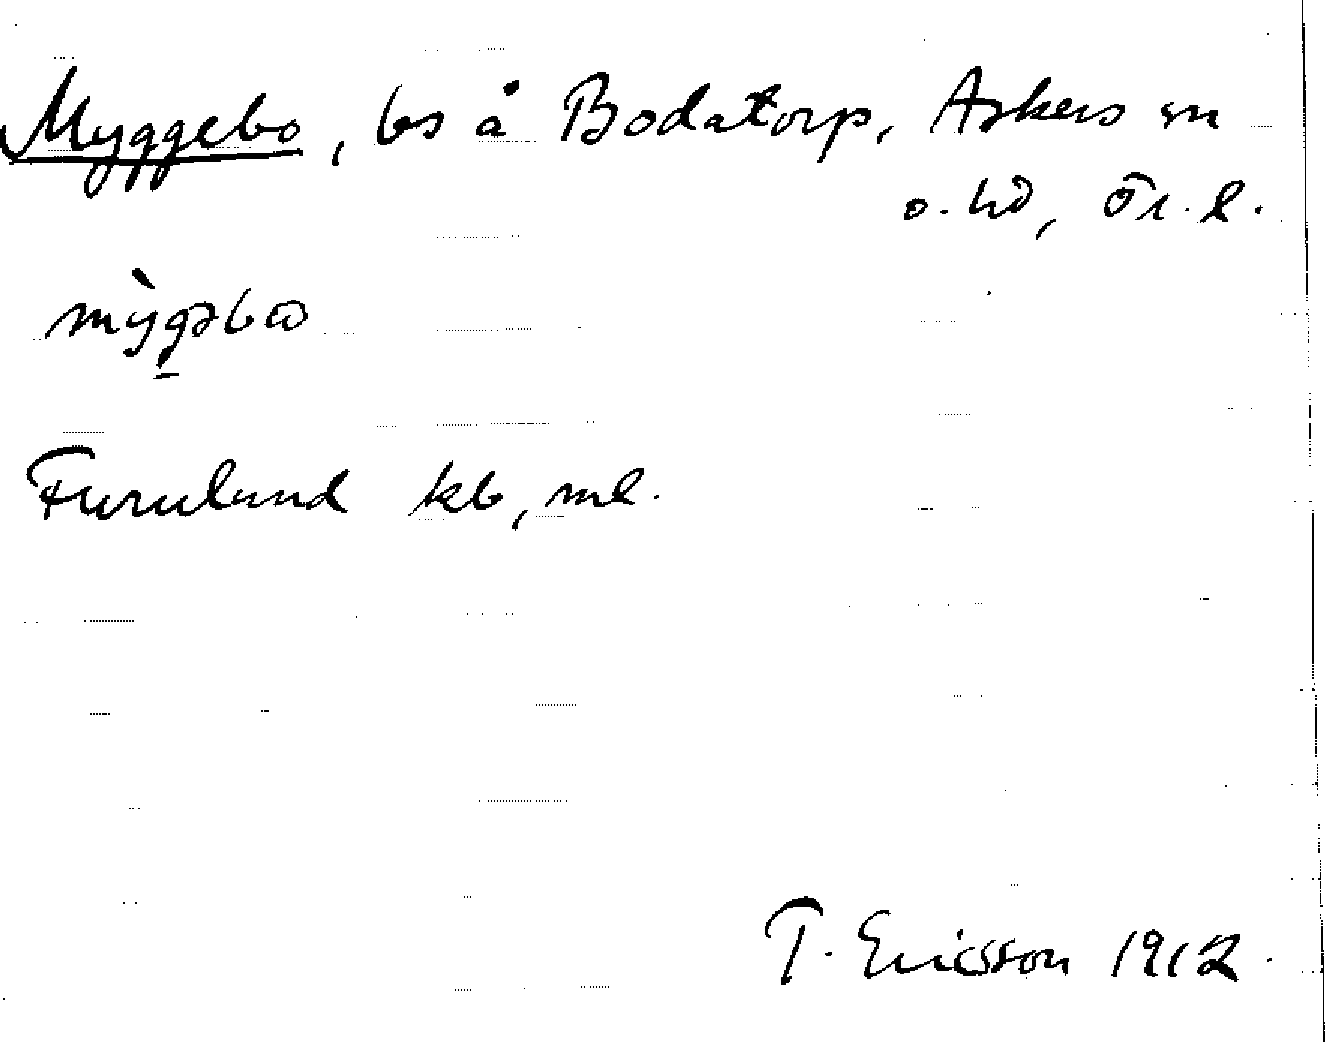 Myggebo, bs å Bodatorp, Askers sn
o. hd, Ör. l.
mỳgəbω
Furuland kb, ml.
T. Ericsson 1912.